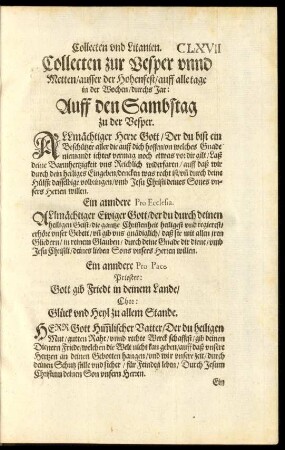 Collecten vnd Litanien. CLXVII
Collecten zur Vesper vnnd
Metten / ausser der Hohenfest / auff alle tage
in der Wochen / durchs Jar:
Auff den Sambstag
zu der Vesper.
ALLmächtiger Herre Gott / Der du bist ein
Beschützer aller die auff dich hoffen / on welches Gnade
niemandt ichtes vermag noch etwas vor dir gilt / Laß
deine Barmhertzigkeit vns Reichlich widerfaren / auff daß wir
durch dein heiliges Eingeben / dencken was recht ist / vñ durch deine
Hülffe dasselbige volbringen / vmb Jesu Christi deines Sones vn-
sers Herren willen.
Ein anndere Pro Ecclesia.
ALlmächtiger Ewiger Gott / der du durch deinen
heiligen Geist / die gantze Christenheit heiligest vnd regierest /
erhöre vnser Gebet / vñ gib vns gnädiglich / daß sie mit allen jren
Gliedern / in reinem Glauben / durch deine Gnade dir diene / vmb
Jesu Christi / deines lieben Sons vnsers Herren willen.
Ein anndere Pro Pace.
Priester:
Gott gib Friedt in deinem Lande /
Chor:
Glück vnd Heyl zu allem Stande.
HERR Gott Him̃lischer Vatter / Der du heiligen
Mut / gutten Raht / vnnd rechte Werck schaffest / gib deinen
Dienern Friede / welchen die Welt nicht kan geben / auff daß vnsere
Hertzen an deinen Gebotten hangen / vnd wir vnsere zeit / durch
deinen Schutz stille vnd sicher / für Feinden leben / Durch Jesum
Christum deinen Son vnsern Herren.
Ein